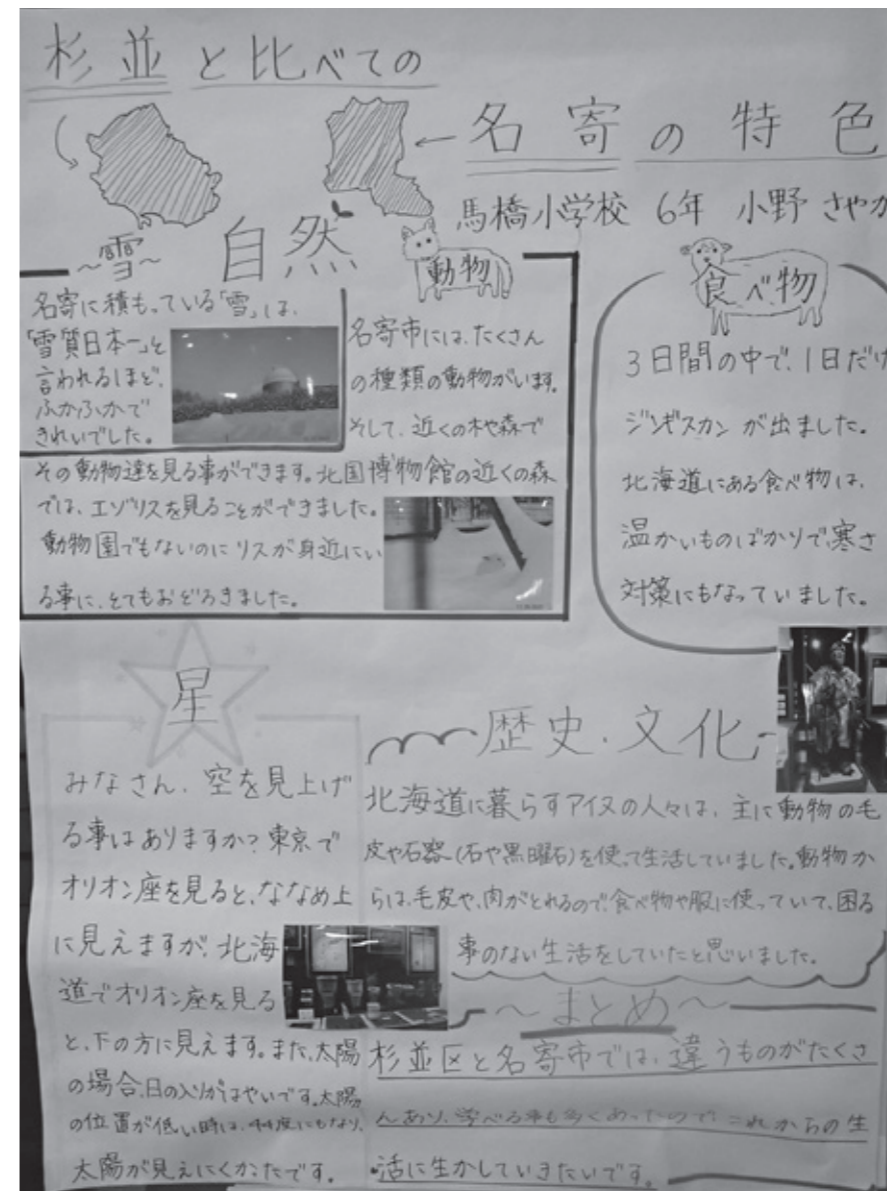 杉並と比べての
名寄の特色
馬橋小学校 6年 小野 さやか
自然
~雪~
名寄に積もっている「雪」は、
「雪質日本一」と
言われるほど、
ふかふかで
きれいでした。
動物
名寄市には、たくさん
の種類の動物がいます。
そして、近くの木や森で
その動物達を見る事ができます。北国博物館の近くの森
では、エゾリスを見ることができました。
動物園でもないのにリスが身近にい
る事に、とてもおどろきました。
食べ物
3日間の中で、1日だけ
ジンギスカンが出ました。
北海道にある食べ物は、
温かいものばかりで、寒さ
対策にもなっていました。
星
みなさん、空を見上げ
る事はありますか?東京で
オリオン座を見ると、ななめ上
に見えますが、北海
道でオリオン座を見る
と、下の方に見えます。また、太陽
の場合、日の入りがはやいです。太陽
の位置が低い時は、度にもなり、
太陽が見えにくかたです。
歴史・文化
北海道に暮らすアイヌの人々は、主に動物の毛
皮や石器(石や黒曜石)を使って生活していました。動物か
らは、毛皮や、肉がとれるので、食べ物や服に使っていて、困る
事のない生活をしていたと思いました。
~まとめ~
杉並区と名寄市では、違うものがたくさ
んあり、学べる事も多くあったので、これからの生
活に生かしていきたいです。